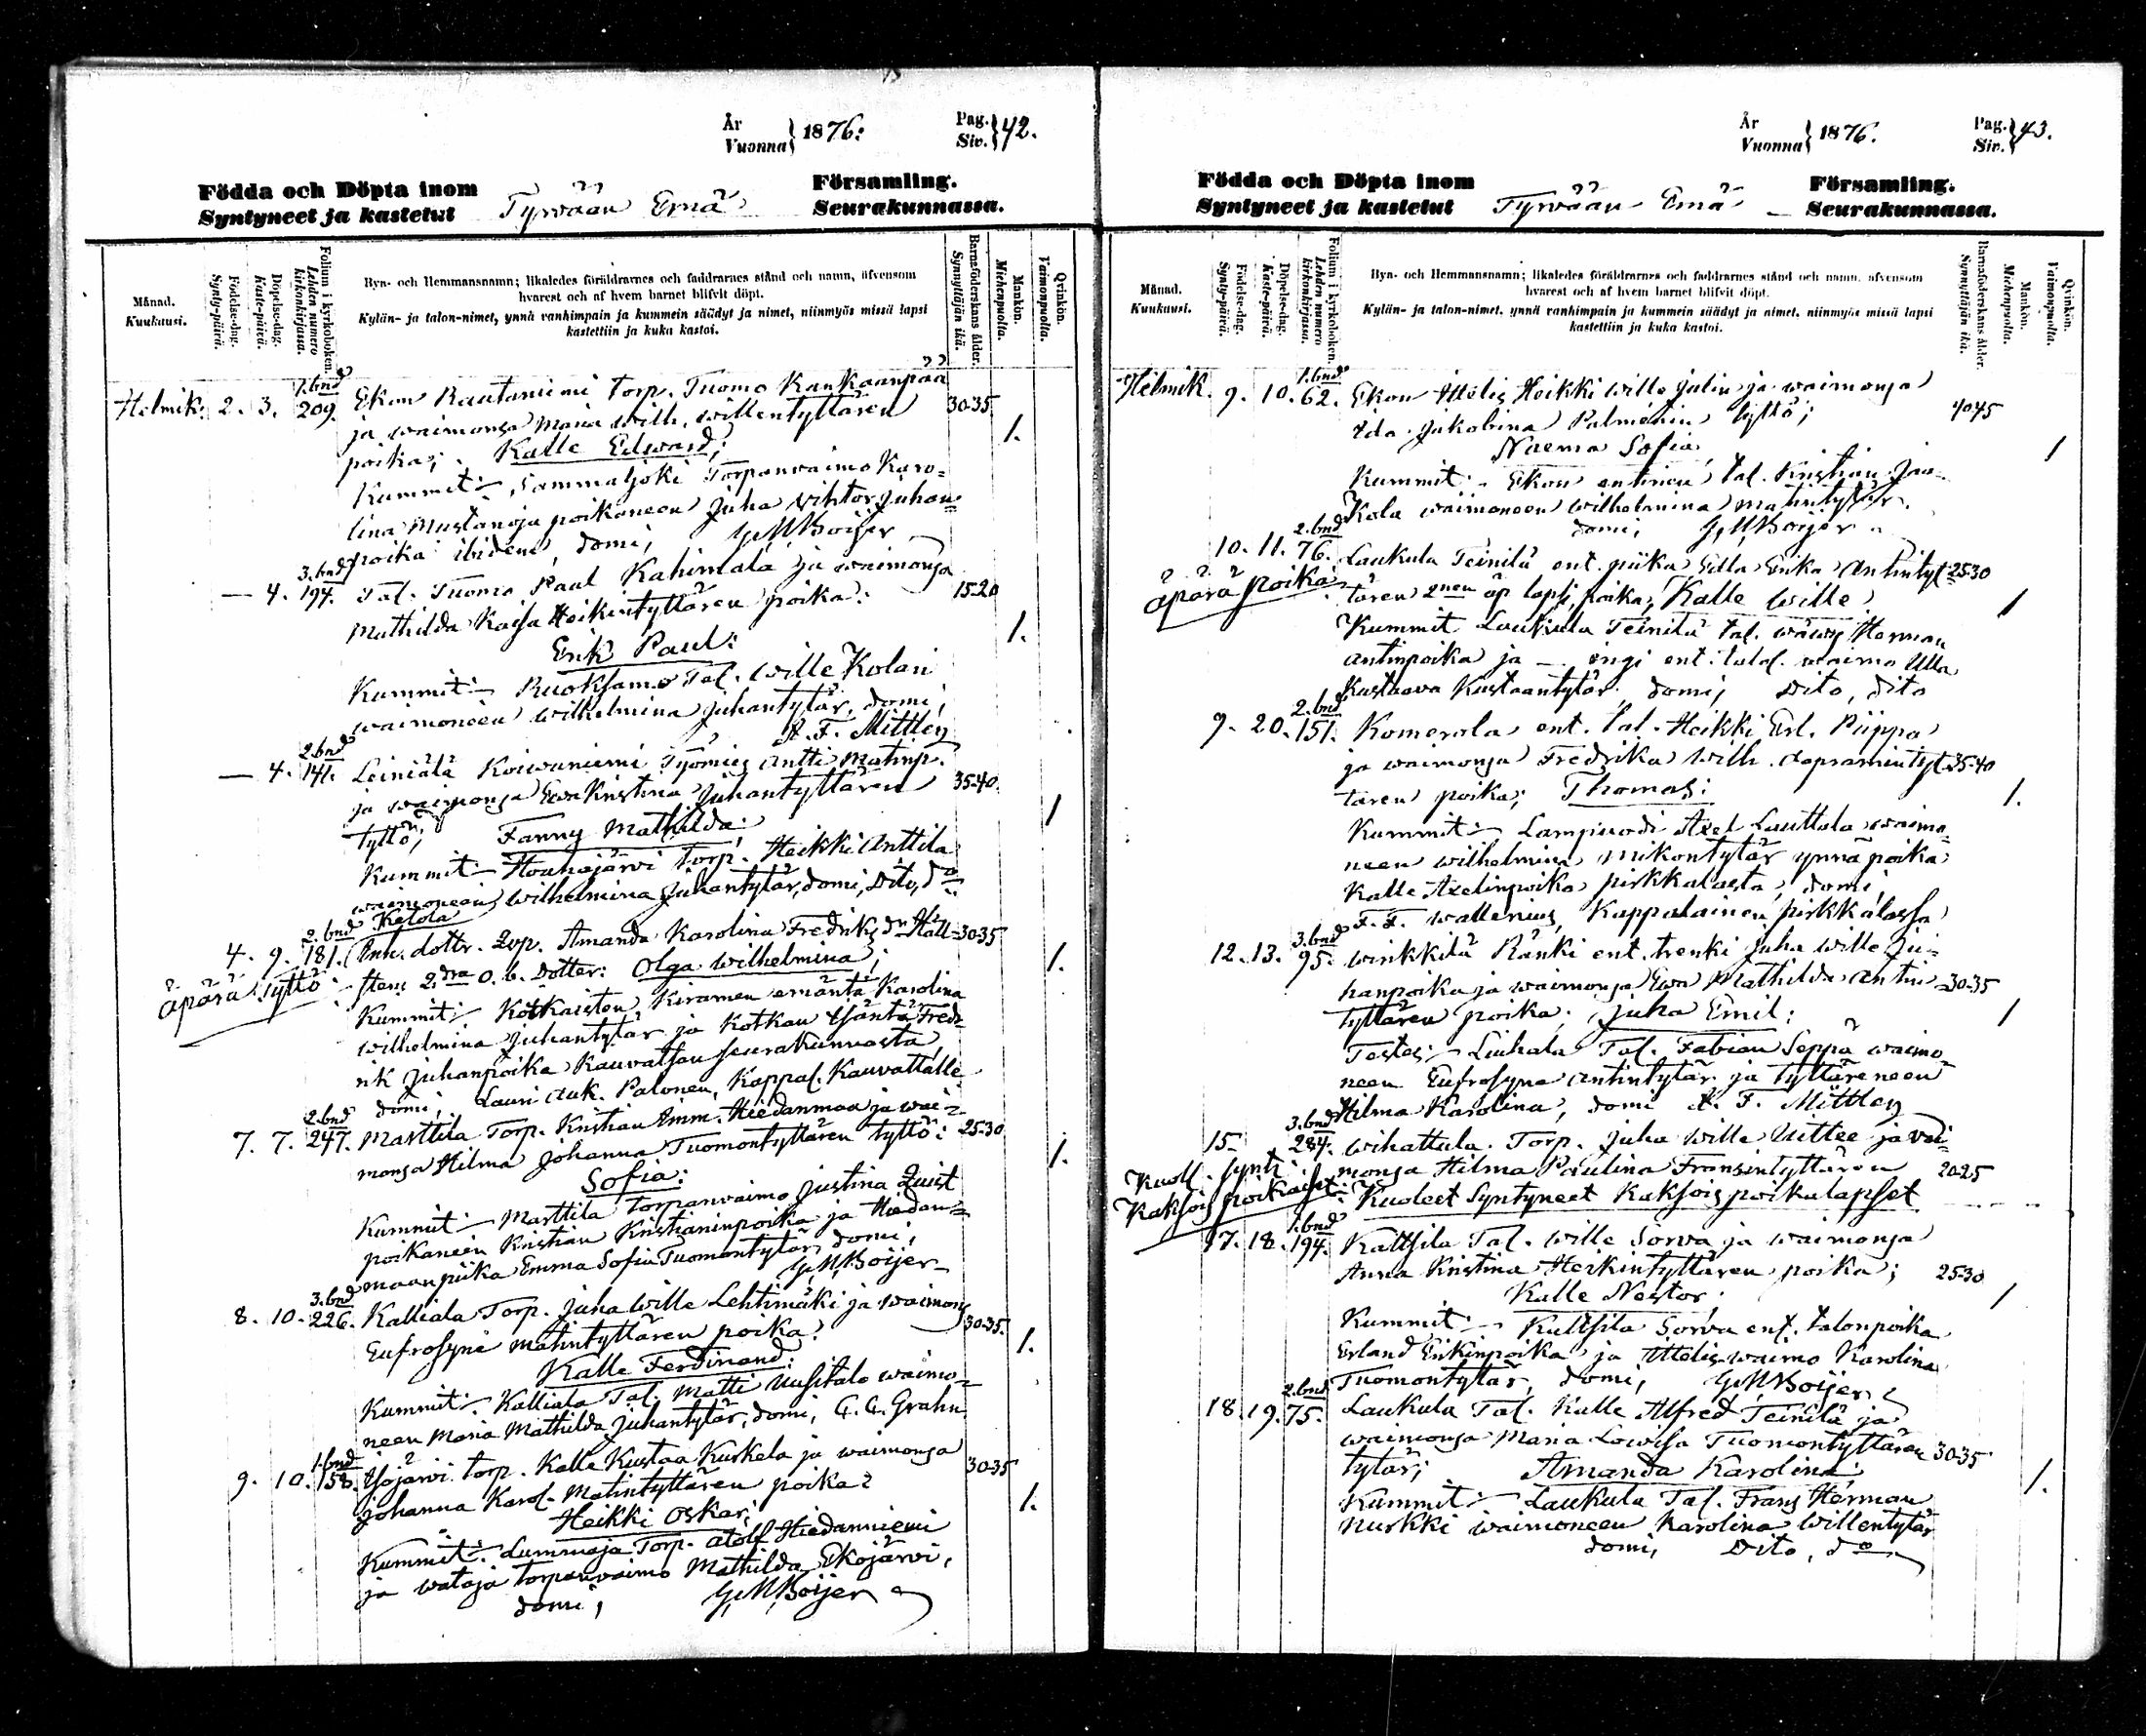 År
Vuonna } 1876:
Pag.
Siv. } 42.
Födda och Döpta inom
Syntyneet ja kastetut
Tyrvään Emä
Församling.
Seurakunnassa.
Månad.
Kuukausi.
Födelse-dag.
Synty-päivä.
Döpelse-dag.
Kaste-päivä.
Folium i kyrkoboken.
Lehden numero kirkonkirjassa.
Byn- och Hemmansnamn; likaledes föräldrarnes och faddrarnes stånd och namn, äfvensom
hvarest och af hvem barnet blifvit döpt.
Kylän- ja talon-nimet, ynnä vanhimpain ja kummein säädyt ja nimet, niinmyös missä lapsi
kastettiin ja kuka kastoi.
Barnaföderskans ålder.
Synnyttäjän ikä.
Mankön.
Miehenpuolta.
Qvinkön.
Vaimonpuolta.
1.bnd
Helmik. 2. 3. 209. Ekon Rautaniemi torp. Tuomo Kankaanpää
ja waimonsa Maria Wilh. Willentyttären 30-35
poika; Kalle Edward; 1.
Kummit:- Sammaljoki Torpanwaimo Karo-
lina Mustanoja poikaneen Juha Wihtor Juhan-
poika ibidem, domi, G.M.Boijer
3.bnd
— 4. 194. Tal. Tuomo Paul Kahimala ja waimonsa
Mathilda Kaisa Heikintyttären poika: 15-20
Erik Paul: 1.
Kummit:- Ruoksamo Tal. Wille Kolari
waimoneen Wilhelmina Juhantytär, domi,
A. F. Mittler
2.bnd
— 4. 141. Leiniälä Koiwuniemi Työmies Antti Matinp.
ja waimonsa Ewa Kristina Juhantyttären 35-40.
tyttö; Fanny Mathilda: 1
Kummit:- Houhajärvi Torp. Heikki Anttila
waimoneen Wilhelmina Juhantytär, domi, Dito, do
2.bnd Ketola
4. 9. 181. Inh. dottr. Zep. Amanda Karolina Fredriks dr Häll- 30-35
äpärä tyttö stens 2dra o. b. Dotter: Olga Wilhelmina; 1.
Kummit:- Kotkaisten Kiramen emäntä Karolina
Wilhelmina Juhantytär ja Kotkan Isäntä Fred-
rik Juhanpoika Kauvatsan seurakunnasta
domi, Lauri Auk. Palonen, Kappal. Kauvattalle
2.bnd
7. 7. 247. Marttila Torp. Kristian Imm. Hiedanmaa ja wai-
monsa Hilma Johanna Tuomontyttären tyttö: 25-30
Sofia: 1.
Kummit:- Marttila Torpanwaimo Justina Quist
poikaneen Kristian Kristianinpoika ja Hiedan-
maan piika Emma Sofia Tuomontytär, domi,
G.M.Boijer
3.bnd
8. 10. 226. Kalliala Torp. Juha Wille Lehtimäki ja waimons
Eufrosyne Matintyttären poika: 30-35.
Kalle Ferdinand: 1.
Kummit:- Kalliala Tal. Matti Uusitalo waimo-
neen Maria Mathilda Juhantytär, domi, G. A. Grahn
1.bnd
9. 10. 158. Isojärvi torp. Kalle Kustaa Kurkela ja waimonsa 30-35
Johanna Karol. Matintyttären poika:
Heikki Oskar; 1.
Kummit:- Lummaja Torp. Adolf Hiedanniemi
ja Wataja torpanwaimo Mathilda Ekojärwi,
domi, G.M.Boijer
År
Vuonna } 1876.
Pag.
Siv. } 43.
Födda och Döpta inom
Syntyneet ja kastetut
Tyrvään Emä
Församling.
Seurakunnassa.
Månad.
Kuukausi.
Födelse-dag.
Synty-päivä.
Döpelse-dag.
Kaste-päivä.
Folium i kyrkoboken.
Lehden numero kirkonkirjassa.
Byn- och Hemmansnamn; likaledes föräldrarnes och faddrarnes stånd och namn, äfvensom
hvarest och af hvem barnet blifvit döpt.
Kylän- ja talon-nimet, ynnä vanhimpain ja kummein säädyt ja nimet, niinmyös missä lapsi
kastettiin ja kuka kastoi.
Barnaföderskans ålder.
Synnyttäjän ikä.
Mankön.
Miehenpuolta.
Qvinkön.
Vaimonpuolta.
1.bnd
Helmik. 9. 10. 62. Ekon Itelis Heikki Wille Julin ja waimonsa
Ida Jakobina Palmenin tyttö; 40-45
Naema Sofia, 1
Kummit:- Ekon entinen tal. Kristian Jaa-
kola waimoneen Wilhelmina Matintytär.
domi; G.M.Boijer
2.bnd
10. 11. 76. Laukula Teinilä ent. piika Edla Erika Antintyt- 25-30
äpärä poika tären 2nen äp lapsi, poika; Kalle Wille 1
Kummit Laukula Teinilä tal. wäwy Herman
Antinpoika ja — ingi ent. talol. waimo Ulla
Kustaava Kustaantytär, domi, Dito, Dito
2.bnd
9. 20. 151. Komerola ent. tal. Heikki Erl. Piippo
ja waimonsa Fredrika Wilh. Aapramintyt- 35-40
tären poika; Thomas: 1.
Kummit:- Lampinodi Axel Lauttala waimo-
neen Wilhelmina Mikontytär ynnä poika
Kalle Axelinpoika Pirkkalasta, domi
F. F. Wallenius, Kappalainen Pirkkalassa
3.bnd
12. 13. 95. Winkkilä Ränki ent. trenki Juha Wille Ju-
hanpoika ja waimonsa Ewa Mathilda Antin- 30-35
tyttären poika; Juha Emil: 1
Testes:- Liuhala Tal. Fabian Seppä waimo-
neen Eufrosyna Antintytär ja tyttäreneen
Hilma Karolina, domi A. F. Mittler
3.bnd
15 284. Wihattula Torp. Juha Wille Uittee ja vai-
Kuoll. synt. monsa Hilma Paulina Fransintyttären 20-25
Kaksois poikalset: Kuoleet Syntyneet Kaksois poikalapset
1.bnd
17. 18. 194. Kaltsila Tal. Wille Sorva ja waimonsa
Anna Kristina Heikintyttären poika; 25-30
Kalle Nestor: 1
Kummit:- Kultsila Sorva ent. talonpoika
Erland Erikinpoika ja Ittelis waimo Karolina
Tuomontytär, domi, G.M.Boijer
2.bnd
18. 19. 75. Laukula Tal. Kalle Alfred Teinilä ja
waimonsa Maria Lowisa Tuomontyttären 30-35
tytär; Amanda Karolina: 1.
Kummit:- Laukula Tal. Frans Herman
Nurkki waimoneen Karolina Willentytär
domi, Dito, do